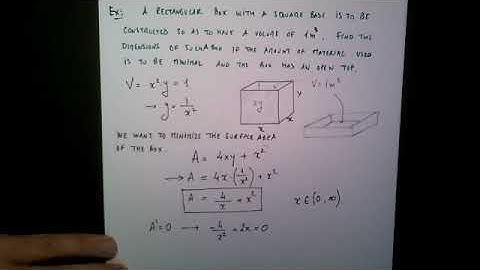 Ex: A RECTANGULAR BOX WITH A SQUARE BASE IS TO BE
CONSTRUCTED SO AS TO HAVE A VOLUME OF 1m³. FIND THE
DIMENSIONS OF SUCH A BOX IF THE AMOUNT OF MATERIAL USED
IS TO BE MINIMAL AND THE BOX HAS AN OPEN TOP.
V = x²y = 1
→ y = 1/x²
xy
y
x
x
V = 1m³
WE WANT TO MINIMIZE THE SURFACE AREA
OF THE BOX.
A = 4xy + x²
→ A = 4x·(1/x²) + x²
A = 4/x + x²
x ∈ (0, ∞)
A' = 0 → -4/x² + 2x = 0